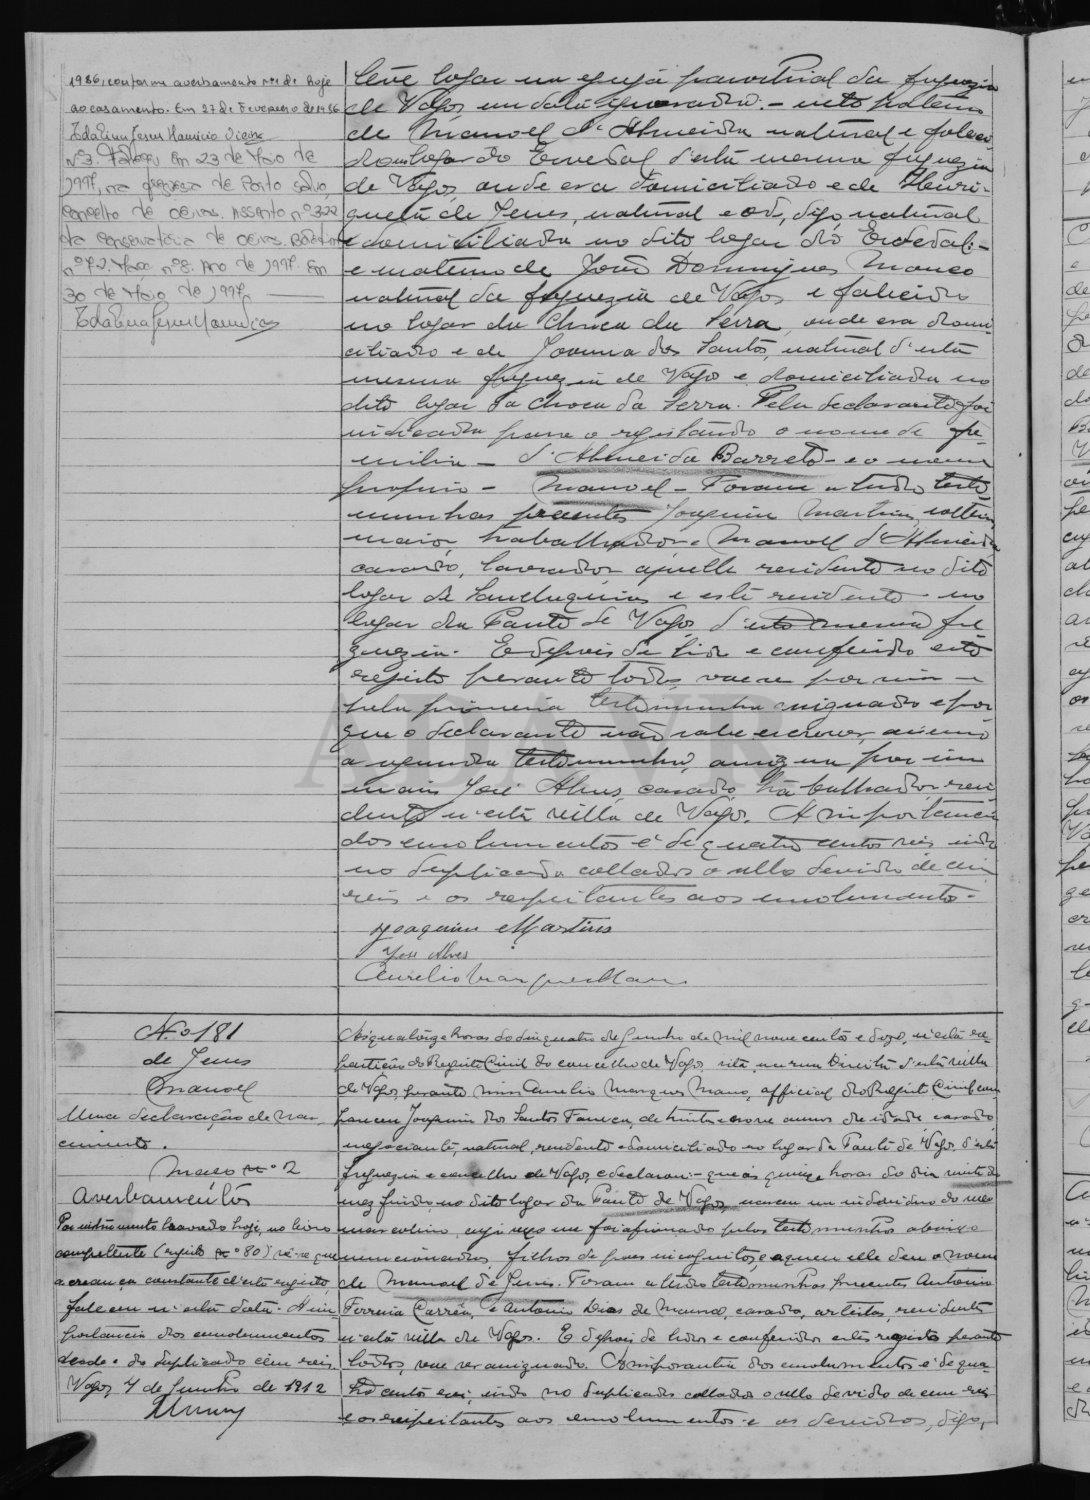 1986, conforme averbamento nº 1 de hoje
ao casamento. Em 27 de Fevereiro de 1986
Idalina Jesus Maurício Vieira
nº 3. Faleceu em 23 de Maio de
1997, na freguesia de Porto Salvo,
concelho de Oeiras. Assento nº 322
da Conservatória de Oeiras. Boletim
nº 72. Maço nº 8. Ano de 1997. Em
30 de Maio de 1997.
teve logar na egreja parochial da freguezia
de Vagos em data ignorada. - neto paterno
de Manoel d'Almeida natural e faleci
do no logar do Ervedal d'esta mesma freguezia
de Vagos, onde era domiciliado e de Henri-
queta de Jesus, natural e do, digo, natural
e domiciliada no dito logar do Ervedal; -
e materno de João Domingues Manco
natural da freguezia de Vagos e falecido
no logar da Choca da Serra, onde era domi-
ciliado e de Joanna dos Santos, natural d'esta
mesma freguezia de Vagos e domiciliada no
dito logar da Choca da Serra. Pelo declarante foi
indicado para o registando o nome de fa-
milia - d'Almeida Barreto - e o nome
proprio - Manoel - Foram a tudo teste
munhas presentes Joaquim Martins, solteiro
maior, trabalhador e Manoel d'Almeida
casado, lavrador, aquelle residente no dito
logar de e este residente no
logar da de Vagos d'esta mesma fre
guezia. E depois de lido e conferido este
registo perante todos, vae ser por mim e
pela primeira testemunha assignado e por
que o declarante não sabe escrever, nem
a segunda testemunha, assigna por
mais José Alves, casado, trabalhador, resi
dente n'esta villa de Vagos. A importancia
dos emolumentos é de quatro centos reis indo
no duplicado collados o sello devido de cem
reis e os respeitantes aos emolumentos. -
Joaquim Martins
José Alves
Aurelio Marques Mano
N.º 181
de Jesus
Manoel
Uma declaração de nas-
cimento.
Maço nº 2
Averbamentos
Por instrumento lavrado hoje, no livro
competente (registo nº 80) vê-se que
a creança constante d'este registo,
faleceu n'esta data. A im-
portancia dos emolumentos
desde e do duplicado cem reis.
Vagos, 4 de Junho de 1912
As quatorze horas do dia quatro de Junho de mil nove centos e doze, n'esta re-
partição do Registo Civil do concelho de Vagos, sita na rua Direita d'esta villa
de Vagos, perante mim Aurelio Marques Mano, official do Registo Civil com
pareceu Joaquim dos Santos Faneca, de trinta e nove annos de idade casado
negociante, natural, residente e domiciliado no logar da de Vagos, d'esta
freguezia e concelho de Vagos, e declarou: - que ás quinze horas do dia vinte do
mez findo, no dito logar da de Vagos, nasceu um individuo do sexo
masculino, cujo sexo me foi afirmado pelas testemunhas abaixo
mencionadas, filho de paes incognitos, e a quem elle deu o nome
de Manoel de Jesus. Foram a tudo testemunhas presentes Antonio
Ferreira Corrêa, e Antonio Dias de casados, artistas, residentes
n'esta villa de Vagos. E depois de lido e conferido este registo perante
todos, vae ser assignado. A importancia dos emolumentos é de qua-
tro centos reis, indo no duplicado collados o sello devido de cem reis
e os respeitantes aos emolumentos e os devidos, digo,